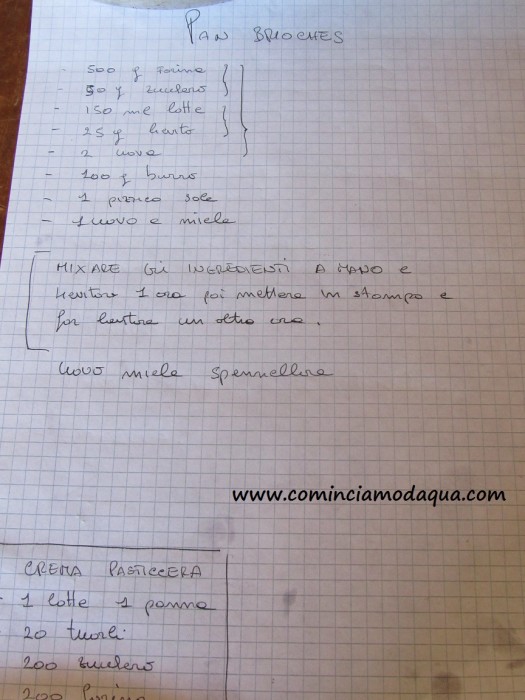 PAN BRIOCHES
- 500 g farina
- 50 g zucchero
- 150 ml latte
- 25 g lievito
- 2 uova
- 100 g burro
- 1 pizzico sale
- 1 uovo e miele
MIXARE GLI INGREDIENTI A MANO e
lievitare 1 ora poi mettere in stampo e
far lievitare un altra ora.
Uovo miele spennellare
www.cominciamodaqua.com
CREMA PASTICCERA
- 1 latte 1 panna
- 20 tuorli
200 zucchero
200 farina